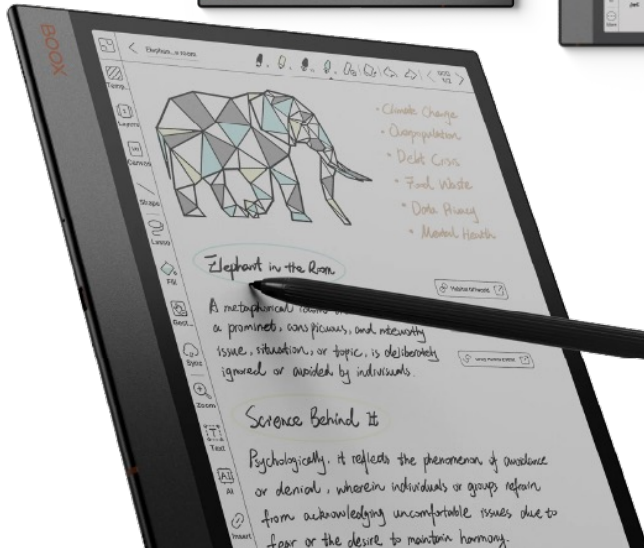 BOOX
Elephan...e Room
Temp...
Layers
Canvas
Shape
Lasso
Fill
Rect...
Sync
Zoom
Text
AI
Insert
• Climate Change
• Overpopulation
• Debt Crisis
• Food Waste
• Data Privacy
• Mental Health
Elephant in the Room
A metaphorical
a prominet, conspicuous, and noteworthy
issue, situation, or topic, is deliberately
ignored or avoided by individuals.
Science Behind It
Psychologically, it reflects the phenomenon of avoidance
or denial, wherein individuals or groups refrain
from acknowledging uncomfortable issues due to
fear or the desire to maintain harmony.